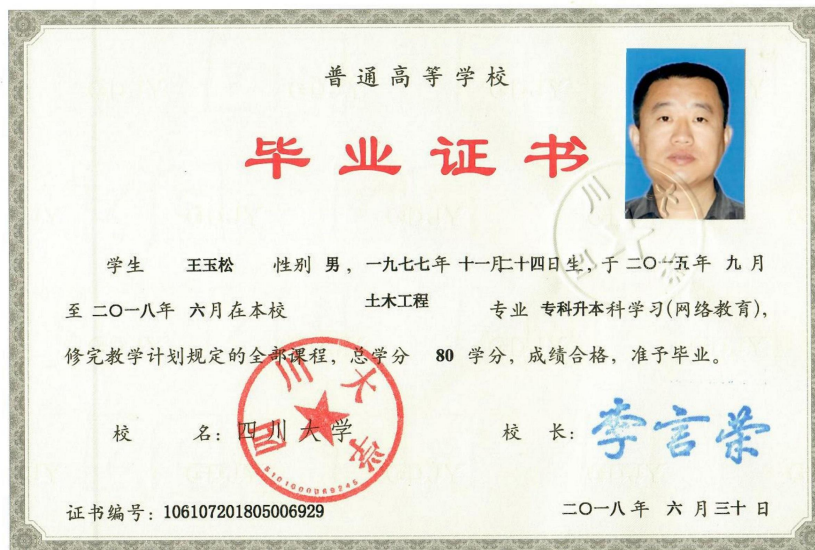 普通高等学校
毕业证书
学生 王玉松 性别 男，一九七七年 十一月二十四日生，于 二〇一五年 九 月
至 二〇一八年 六月在本校 土木工程 专业 专科升本科学习(网络教育)，
修完教学计划规定的全部课程，总学分 80 学分，成绩合格，准予毕业。
校 名：四川大学 校 长：李言荣
四川大学
5101000069245
证书编号：106107201805006929 二〇一八年 六 月 三十 日